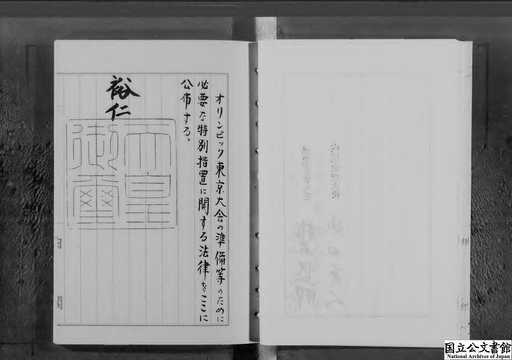 オリンピック東京大会の準備等のために
必要な特別措置に関する法律をここに
公布する。
裕仁
天皇
御璽
国立公文書館
National Archives of Japan